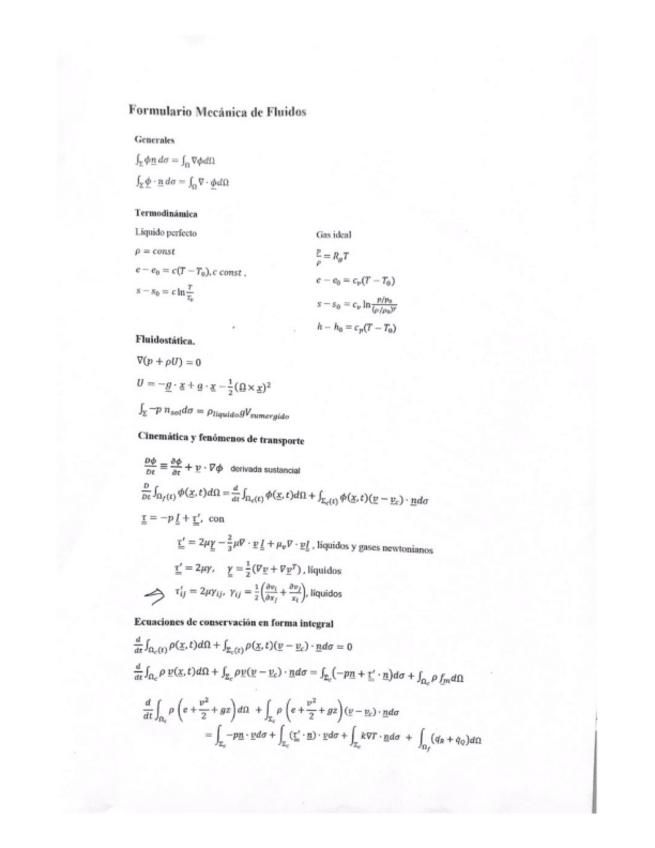 Formulario Mecánica de Fluidos
Generales
∫_Σ ϕn dσ = ∫_Ω ∇ϕdΩ
∫_Σ ϕ · n dσ = ∫_Ω ∇ · ϕdΩ
Termodinámica
Líquido perfecto
ρ = const
e − e₀ = c(T − T₀), c const .
s − s₀ = c ln T/T₀
Gas ideal
p/ρ = R_g T
e − e₀ = c_v(T − T₀)
s − s₀ = c_v ln (p/p₀)/(ρ/ρ₀)^γ
h − h₀ = c_p(T − T₀)
Fluidostática.
∇(p + ρU) = 0
U = −g · x + a · x − ½(Ω × x)²
∫_Σ −p n_sol dσ = ρ_liquido g V_sumergido
Cinemática y fenómenos de transporte
Dϕ/Dt ≡ ∂ϕ/∂t + v · ∇ϕ derivada sustancial
D/Dt ∫_Ωf(t) ϕ(x, t)dΩ = d/dt ∫_Ωc(t) ϕ(x, t)dΩ + ∫_Σc(t) ϕ(x, t)(v − v_c) · n dσ
τ = −p I + τ′, con
τ′ = 2μγ − ⅔μ∇ · v I + μ_v∇ · v I , líquidos y gases newtonianos
τ′ = 2μγ, γ = ½(∇v + ∇vᵀ) , líquidos
τ′_ij = 2μγ_ij, γ_ij = ½(∂v_i/∂x_j + ∂v_j/x_i), líquidos
Ecuaciones de conservación en forma integral
d/dt ∫_Ωc(t) ρ(x, t)dΩ + ∫_Σc(t) ρ(x, t)(v − v_c) · n dσ = 0
d/dt ∫_Ωc ρ v(x, t)dΩ + ∫_Σc ρv(v − v_c) · n dσ = ∫_Σc (−pn + τ′ · n)dσ + ∫_Ωc ρ f_m dΩ
d/dt ∫_Ωc ρ (e + v²/2 + gz) dΩ + ∫_Σc ρ (e + v²/2 + gz) (v − v_c) · n dσ
= ∫_Σc −pn · v dσ + ∫_Σc (τ′ · n) · v dσ + ∫_Σc k∇T · n dσ + ∫_Ωf (q_R + q_Q)dΩ